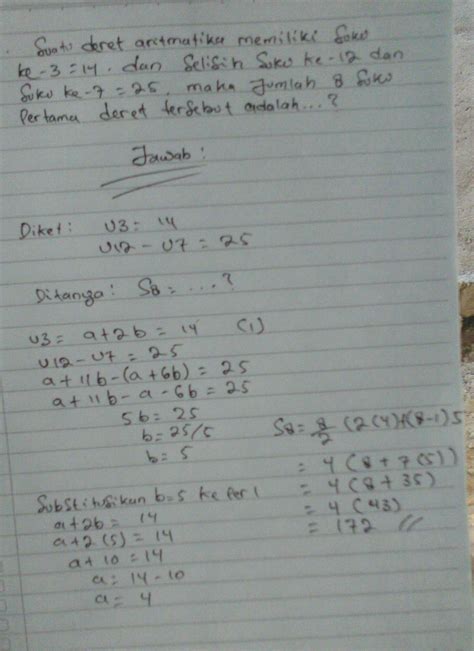 Suatu deret aritmatika memiliki Suku
ke-3=14. dan Selisih Suku ke-12 dan
Suku ke-7 = 25. maka Jumlah 8 Suku
Pertama deret tersebut adalah...?
Jawab:
Diket: U3= 14
U12 - U7 = 25
Ditanya: S8 = ....?
U3= a+2b = 14 (1)
U12-U7 = 25
a+11b-(a+6b) = 25
a+11b-a-6b = 25
5b = 25
b= 25/5
b= 5
Substitusikan b=5 ke Per 1
a+2b = 14
a+2(5) = 14
a+10 = 14
a= 14-10
a= 4
S8 = 8/2 (2(4)+(8-1)5
= 4(8+7(5))
= 4(8+35)
= 4(43)
= 172 //